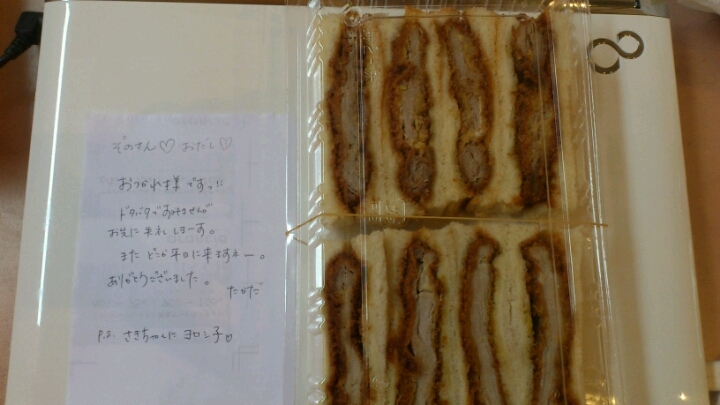 ぞのさん♡ おだし♡
おつかれ様ですっ!!
ドタバタですみませんが
お先に失礼しまーす。
また どこか平日に来ますネー。
ありがとうございました。
たかだ
P.S. さきちゃんに ヨロシ子♡